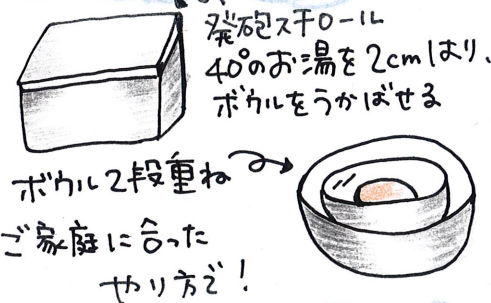 発砲スチロール
40°のお湯を2cmはり、
ボウルをうかばせる
ボウル2段重ね
ご家庭に合った
やり方で！